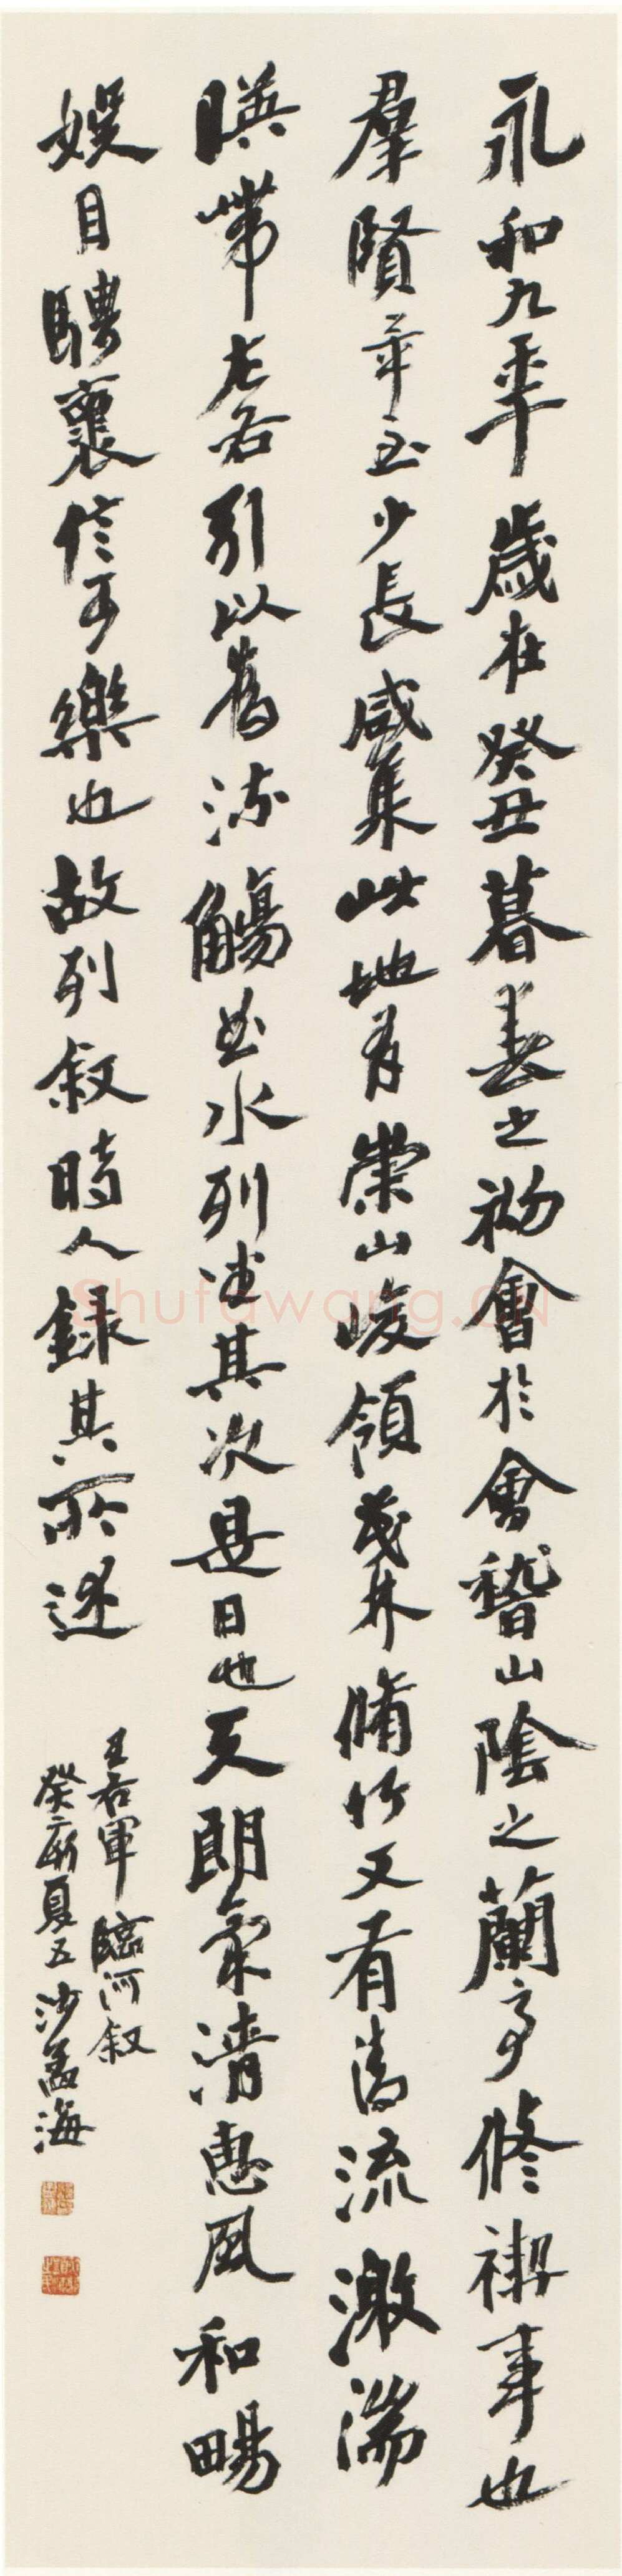 永和九年歲在癸丑暮春之初會於會稽山陰之蘭亭修禊事也
羣賢畢至少長咸集此地有崇山峻領茂林脩竹又有清流激湍
暎帶左右引以為流觴曲水列坐其次是日也天朗氣清惠風和暢
娛目騁褱信可樂也故列敘時人錄其所述
王右軍臨河敘
癸亥夏五沙孟海
Shufawang.CN